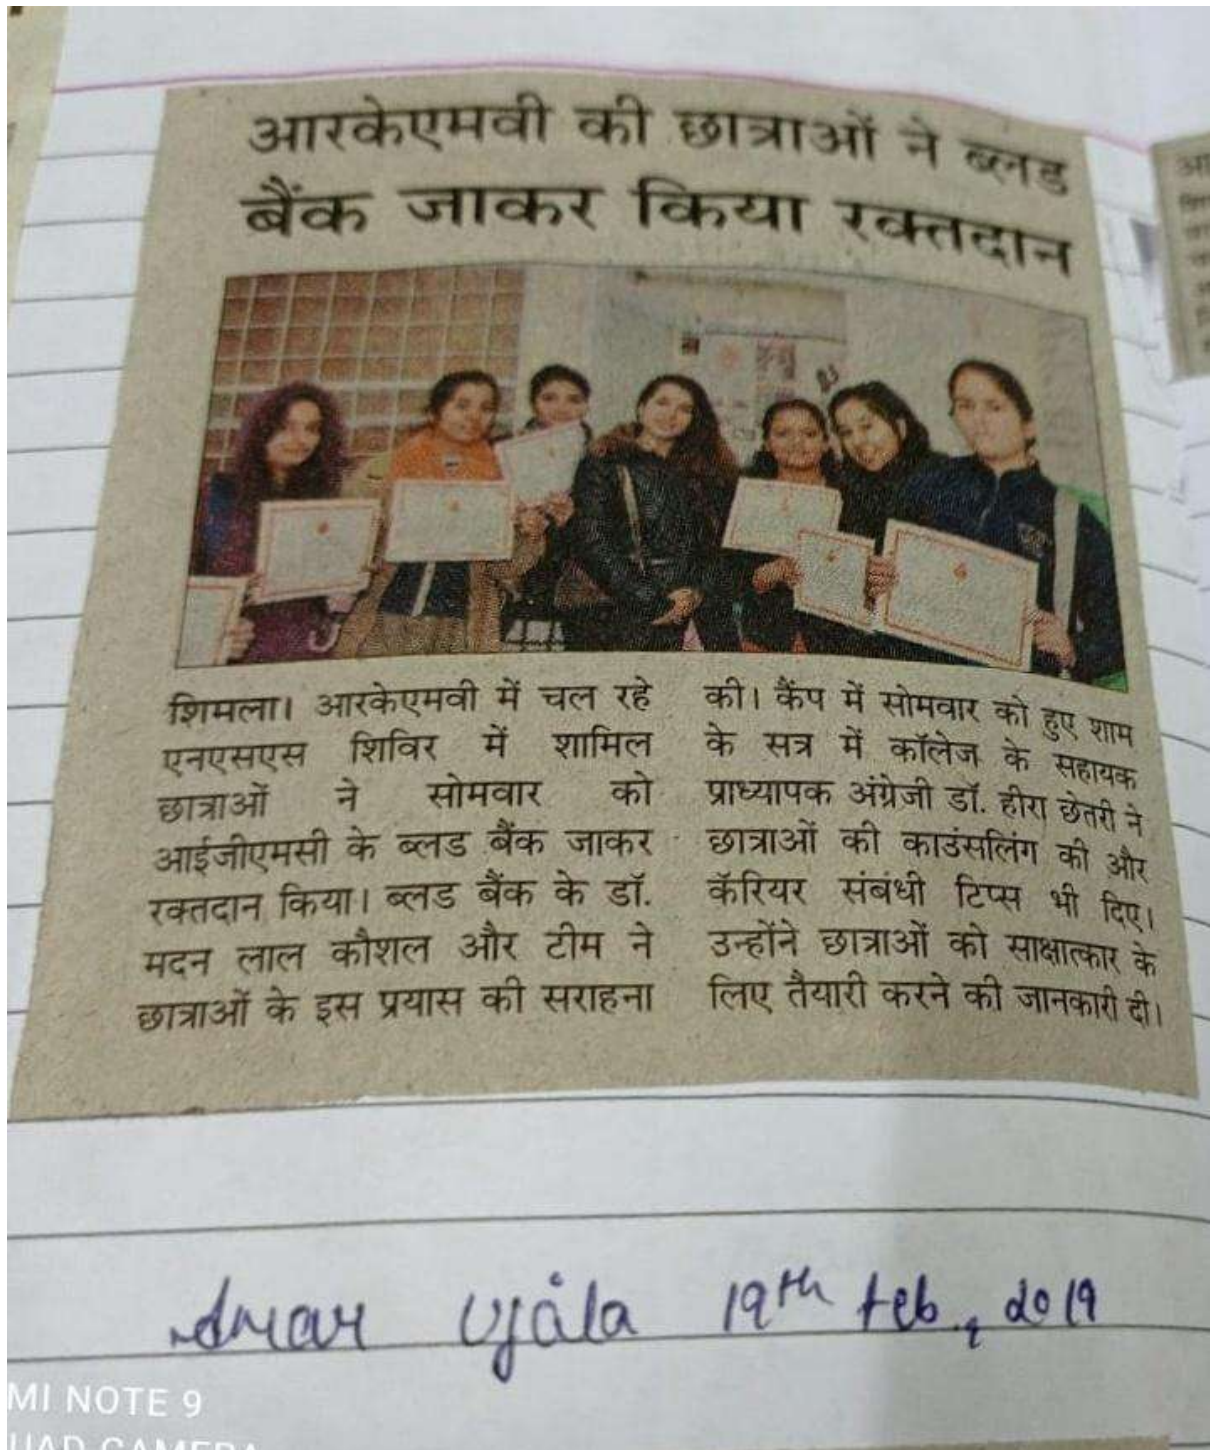 आरकेएमवी की छात्राओं ने ब्लड
बैंक जाकर किया रक्तदान
शिमला। आरकेएमवी में चल रहे
एनएसएस शिविर में शामिल
छात्राओं ने सोमवार को
आईजीएमसी के ब्लड बैंक जाकर
रक्तदान किया। ब्लड बैंक के डॉ.
मदन लाल कौशल और टीम ने
छात्राओं के इस प्रयास की सराहना
की। कैंप में सोमवार को हुए शाम
के सत्र में कॉलेज के सहायक
प्राध्यापक अंग्रेजी डॉ. हीरा छेतरी ने
छात्राओं की काउंसलिंग की और
कॅरियर संबंधी टिप्स भी दिए।
उन्होंने छात्राओं को साक्षात्कार के
लिए तैयारी करने की जानकारी दी।
Amar Ujala 19th Feb., 2019
MI NOTE 9